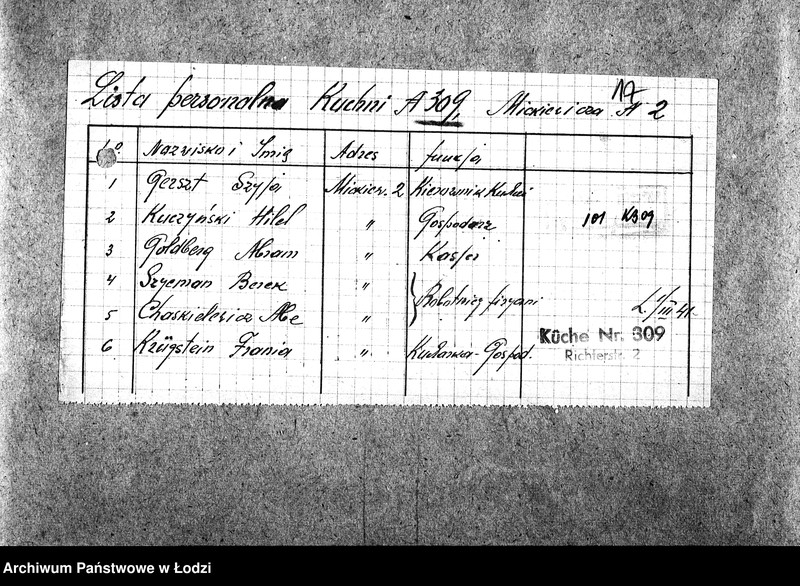 17
Lista personalna Kuchni A 309, Mickiewicza N 2
Nazwisko i Imię Adres funkcja
1 Gerszt Szyja Mickiew. 2 Kierownik Kuchni
2 Kuczyński Hilel " Gospodarz 101 K309
3 Goldberg Abram " Kasjer
4 Szyeman Berek "
Robotnicy fizyczni
5 Chaskielewicz Abe " Ł. 1/III 41
6 Krügstein Frania " Kucharka-Gospod.
Küche Nr. 309
Richterstr. 2
Archiwum Państwowe w Łodzi